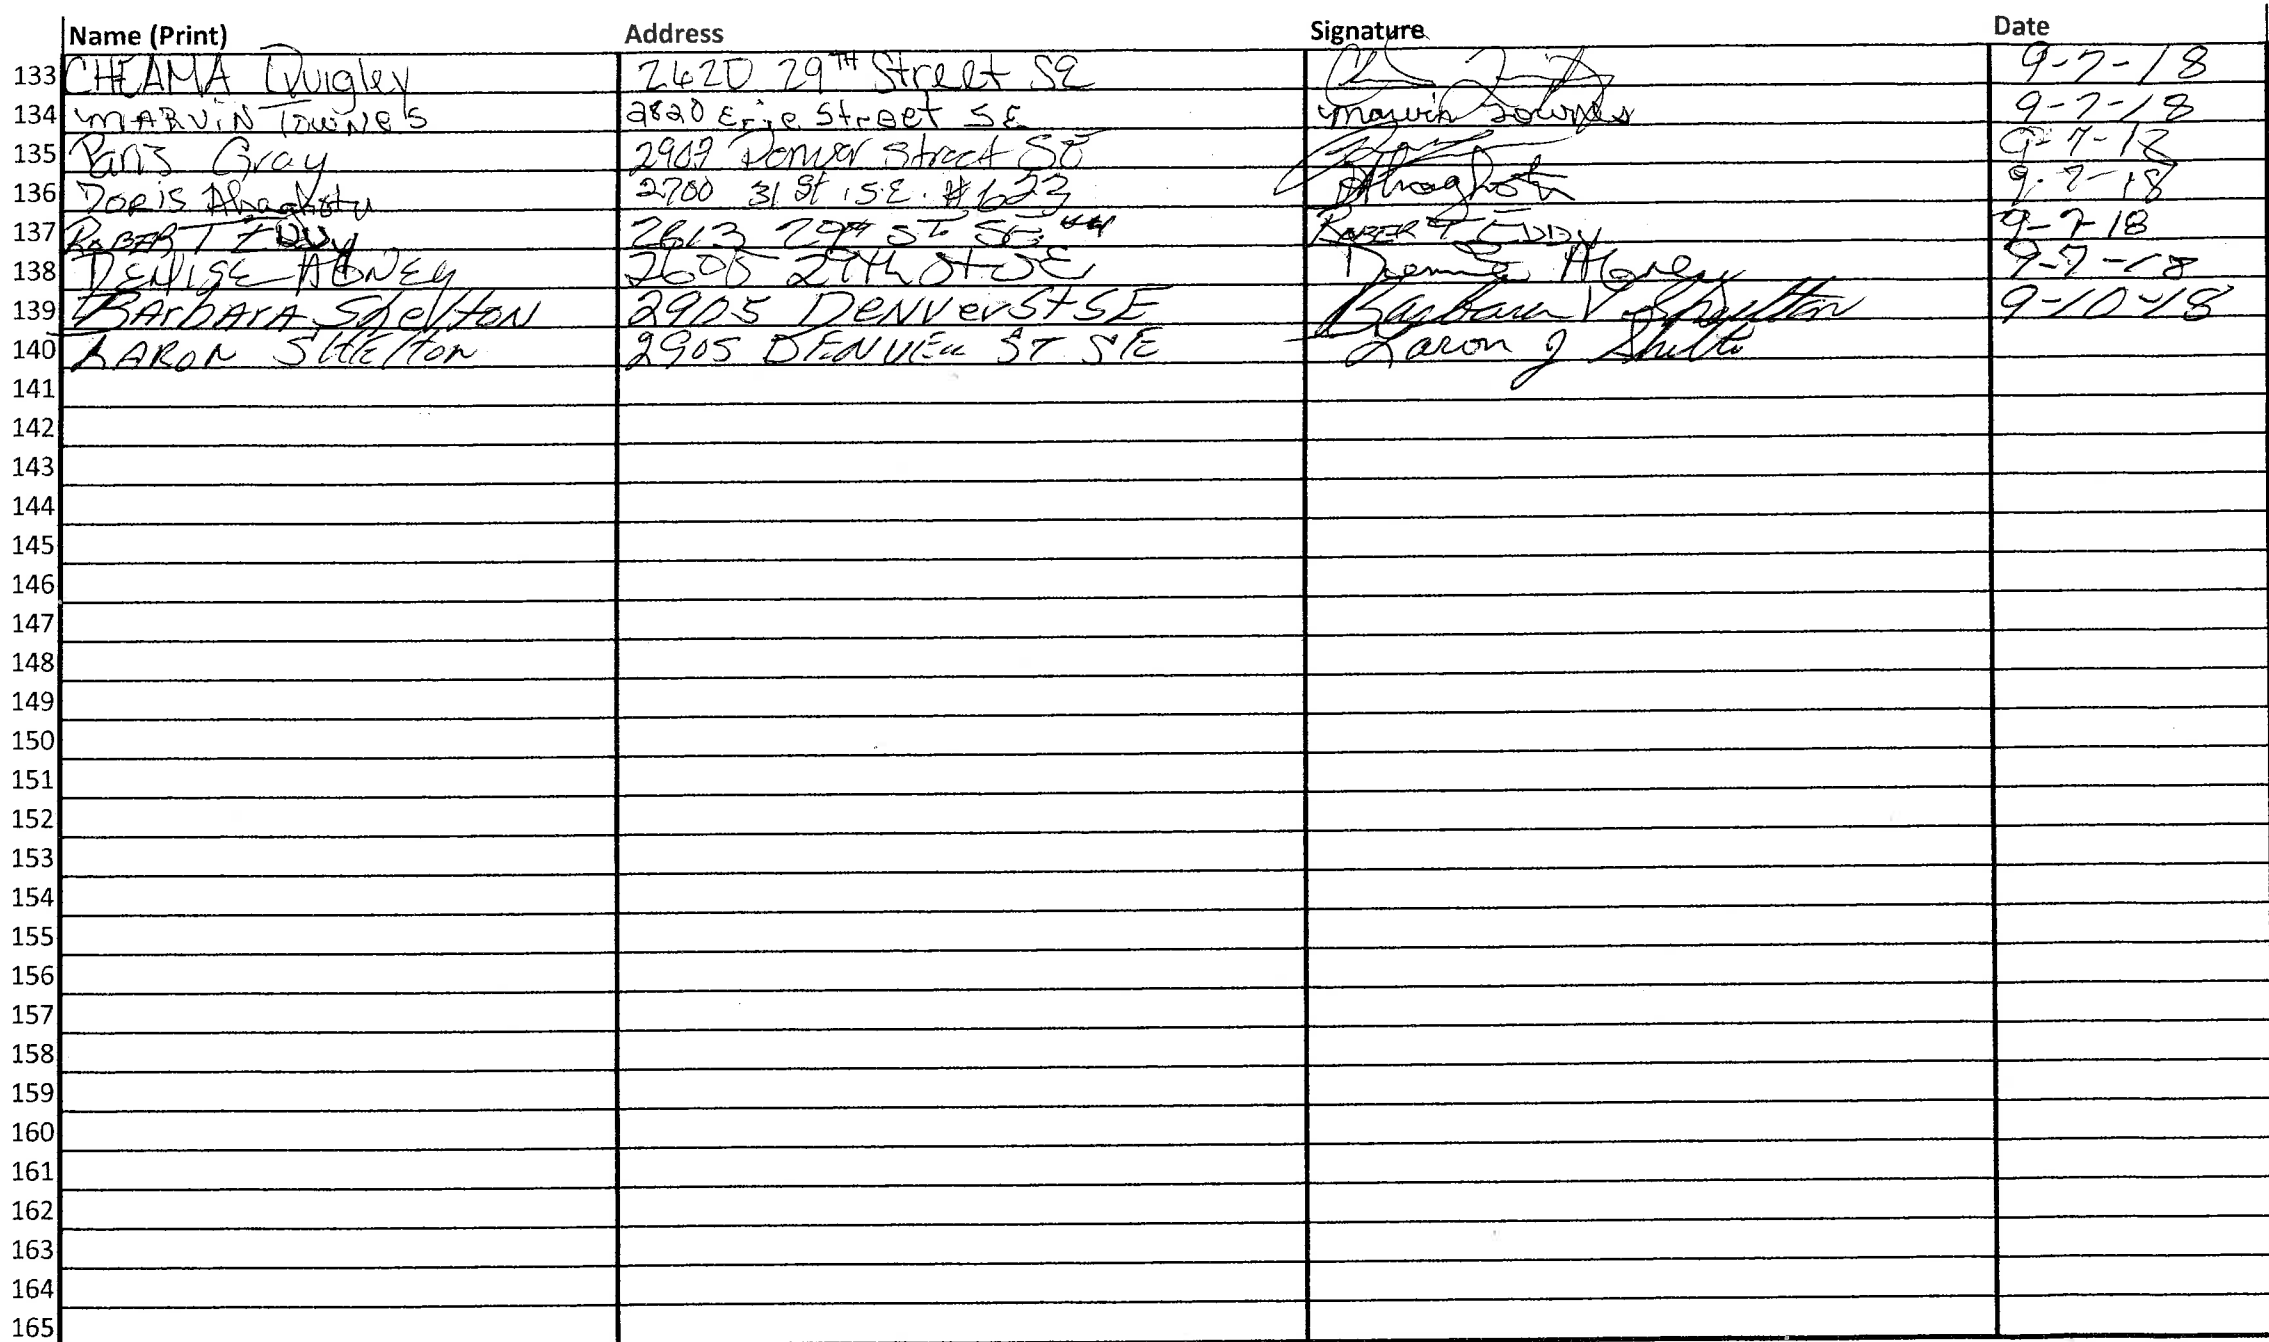 Name (Print) Address Signature Date
133 CHEAMA Quigley 2620 29TH Street SE 9-7-18
134 MARVIN Townes 2820 Erie Street SE Marvin Townes 9-7-18
135 Paris Gray 2909 Denver Street SE 9-7-18
136 DORIS 2700 31 St. S.E. #623 9-7-18
137 ROBERT EDDY 2613 29TH ST SE ROBERT EDDY 9-7-18
138 DENISE ABNEY 2605 29th St SE Denise Abney 9-7-18
139 BARBARA Shelton 2905 DeNver St SE Barbara V. Shelton 9-10-18
140 LARON SHElton 2905 DENVER ST SE Laron J Shelton
141
142
143
144
145
146
147
148
149
150
151
152
153
154
155
156
157
158
159
160
161
162
163
164
165